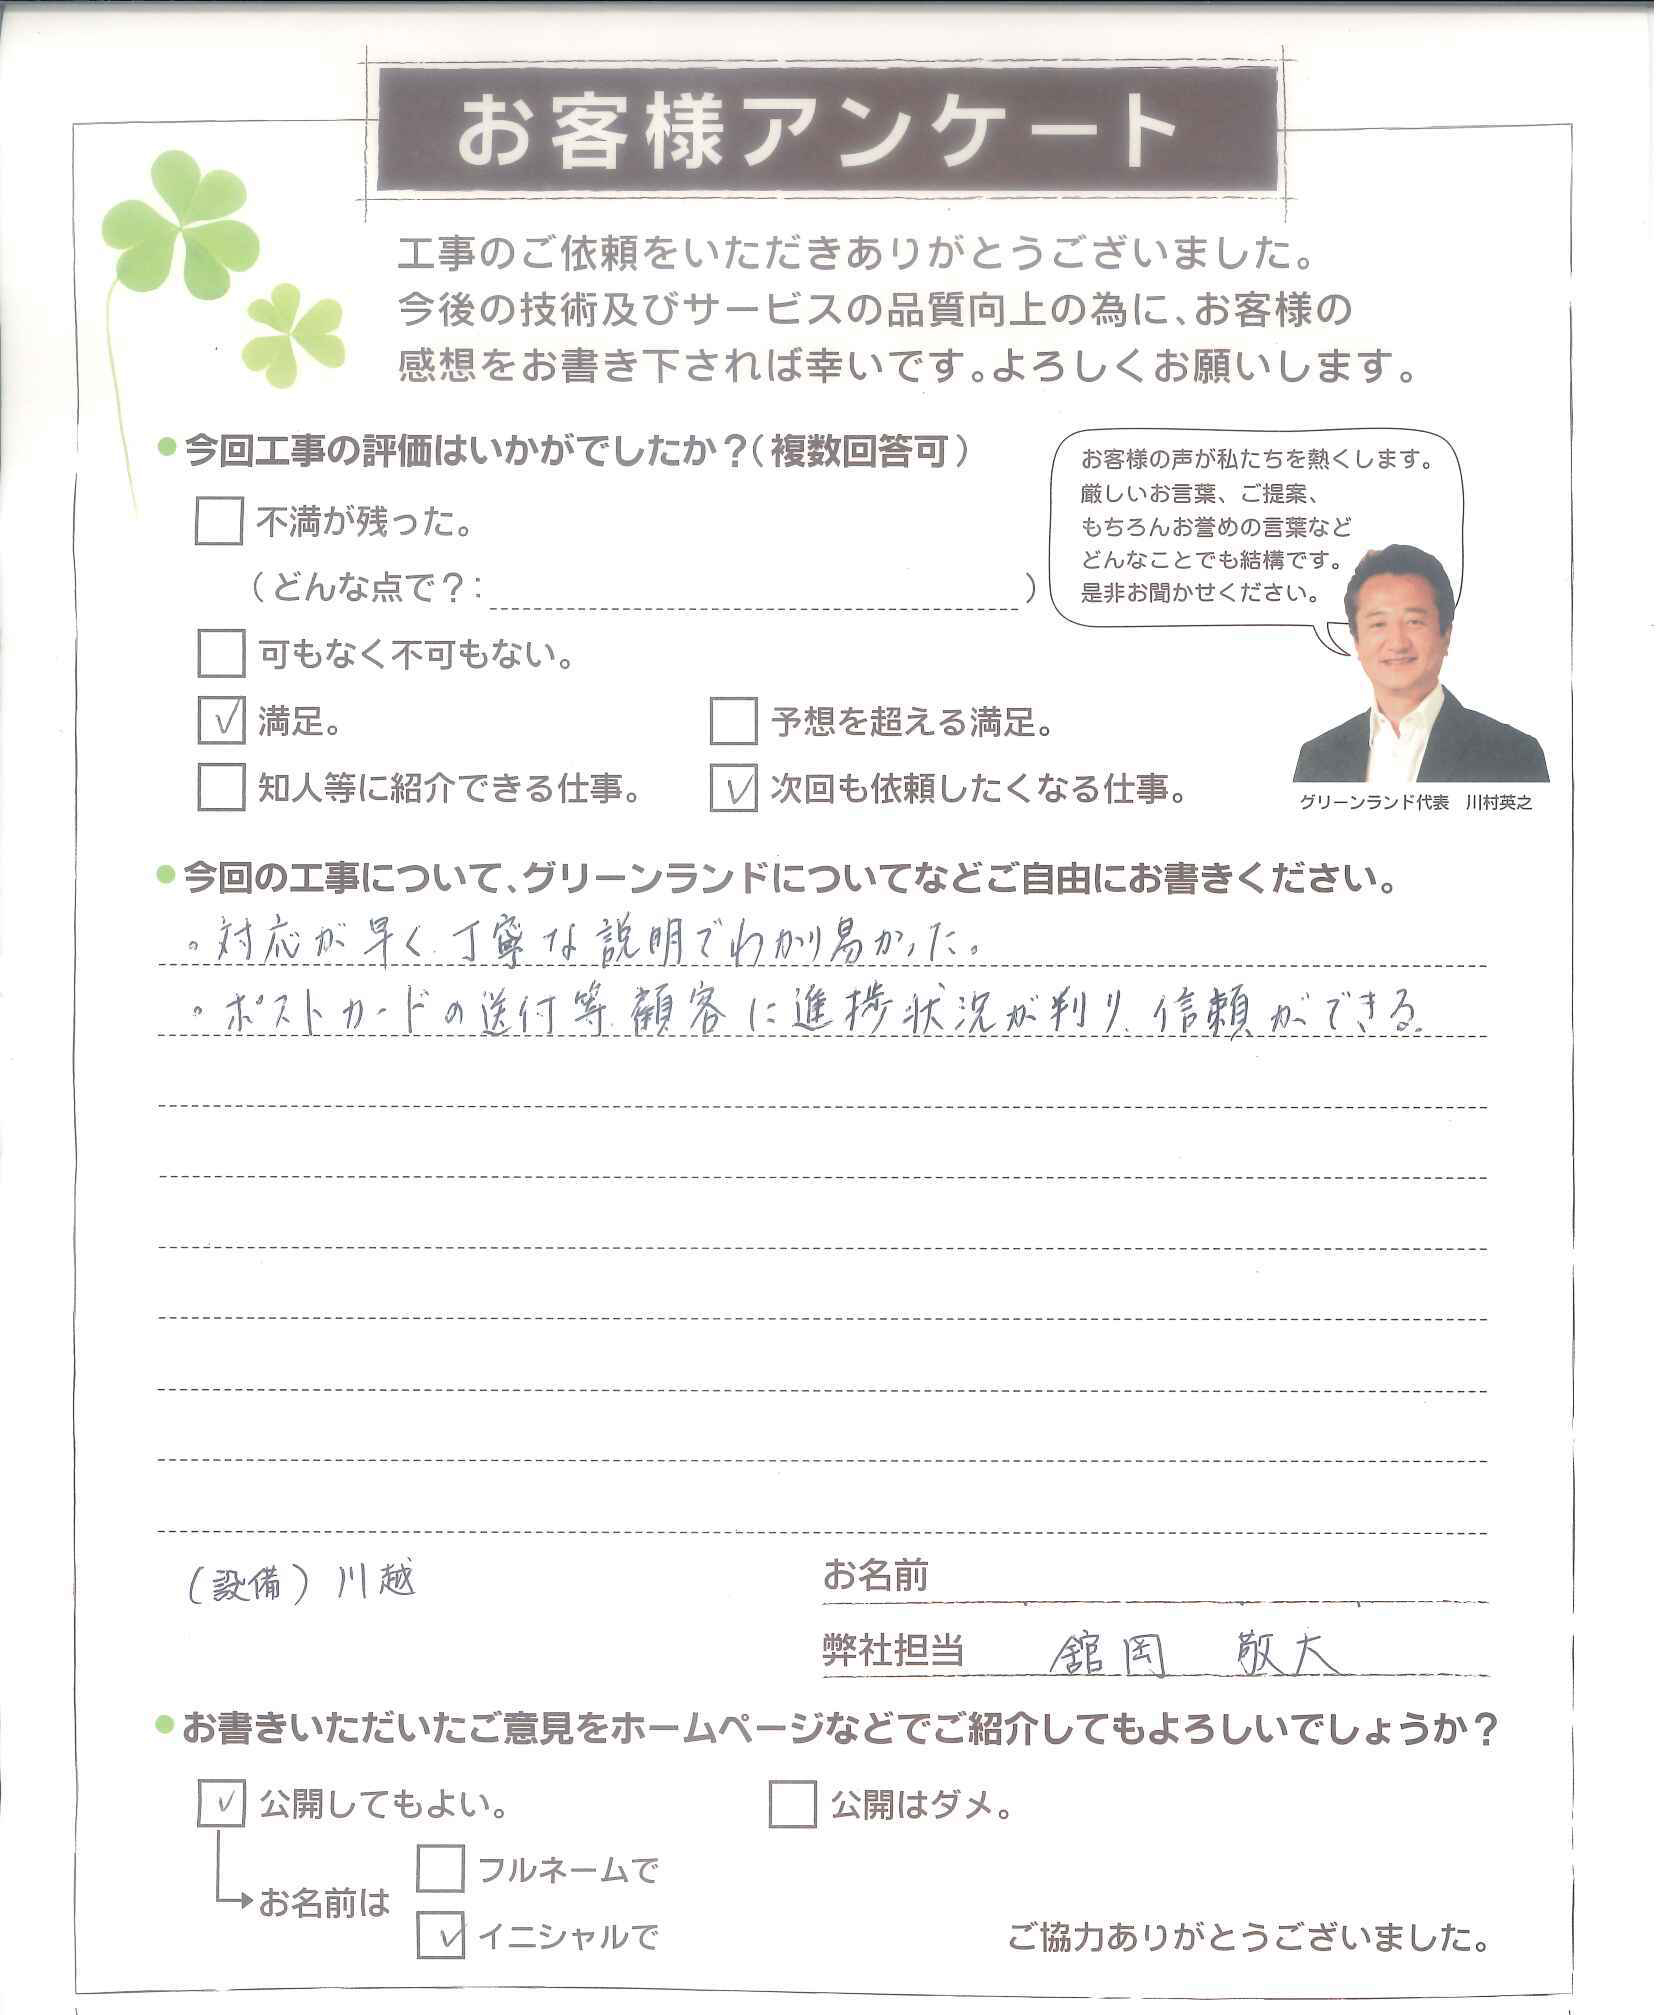 お客様アンケート
工事のご依頼をいただきありがとうございました。
今後の技術及びサービスの品質向上の為に、お客様の
感想をお書き下されれば幸いです。よろしくお願いします。
●今回工事の評価はいかがでしたか？（複数回答可）
お客様の声が私たちを熱くします。
厳しいお言葉、ご提案、
もちろんお誉めの言葉など
どんなことでも結構です。
是非お聞かせください。
□ 不満が残った。
（どんな点で？： ）
□ 可もなく不可もない。
☑ 満足。 □ 予想を超える満足。
□ 知人等に紹介できる仕事。 ☑ 次回も依頼したくなる仕事。
グリーンランド代表 川村英之
●今回の工事について、グリーンランドについてなどご自由にお書きください。
。対応が早く、丁寧な説明でわかり易かった。
。ポストカードの送付等、顧客に進捗状況が判り、信頼ができる。
(設備) 川越
お名前
弊社担当 舘岡 敬大
●お書きいただいたご意見をホームページなどでご紹介してもよろしいでしょうか？
☑ 公開してもよい。 □ 公開はダメ。
お名前は
□ フルネームで
☑ イニシャルで
ご協力ありがとうございました。